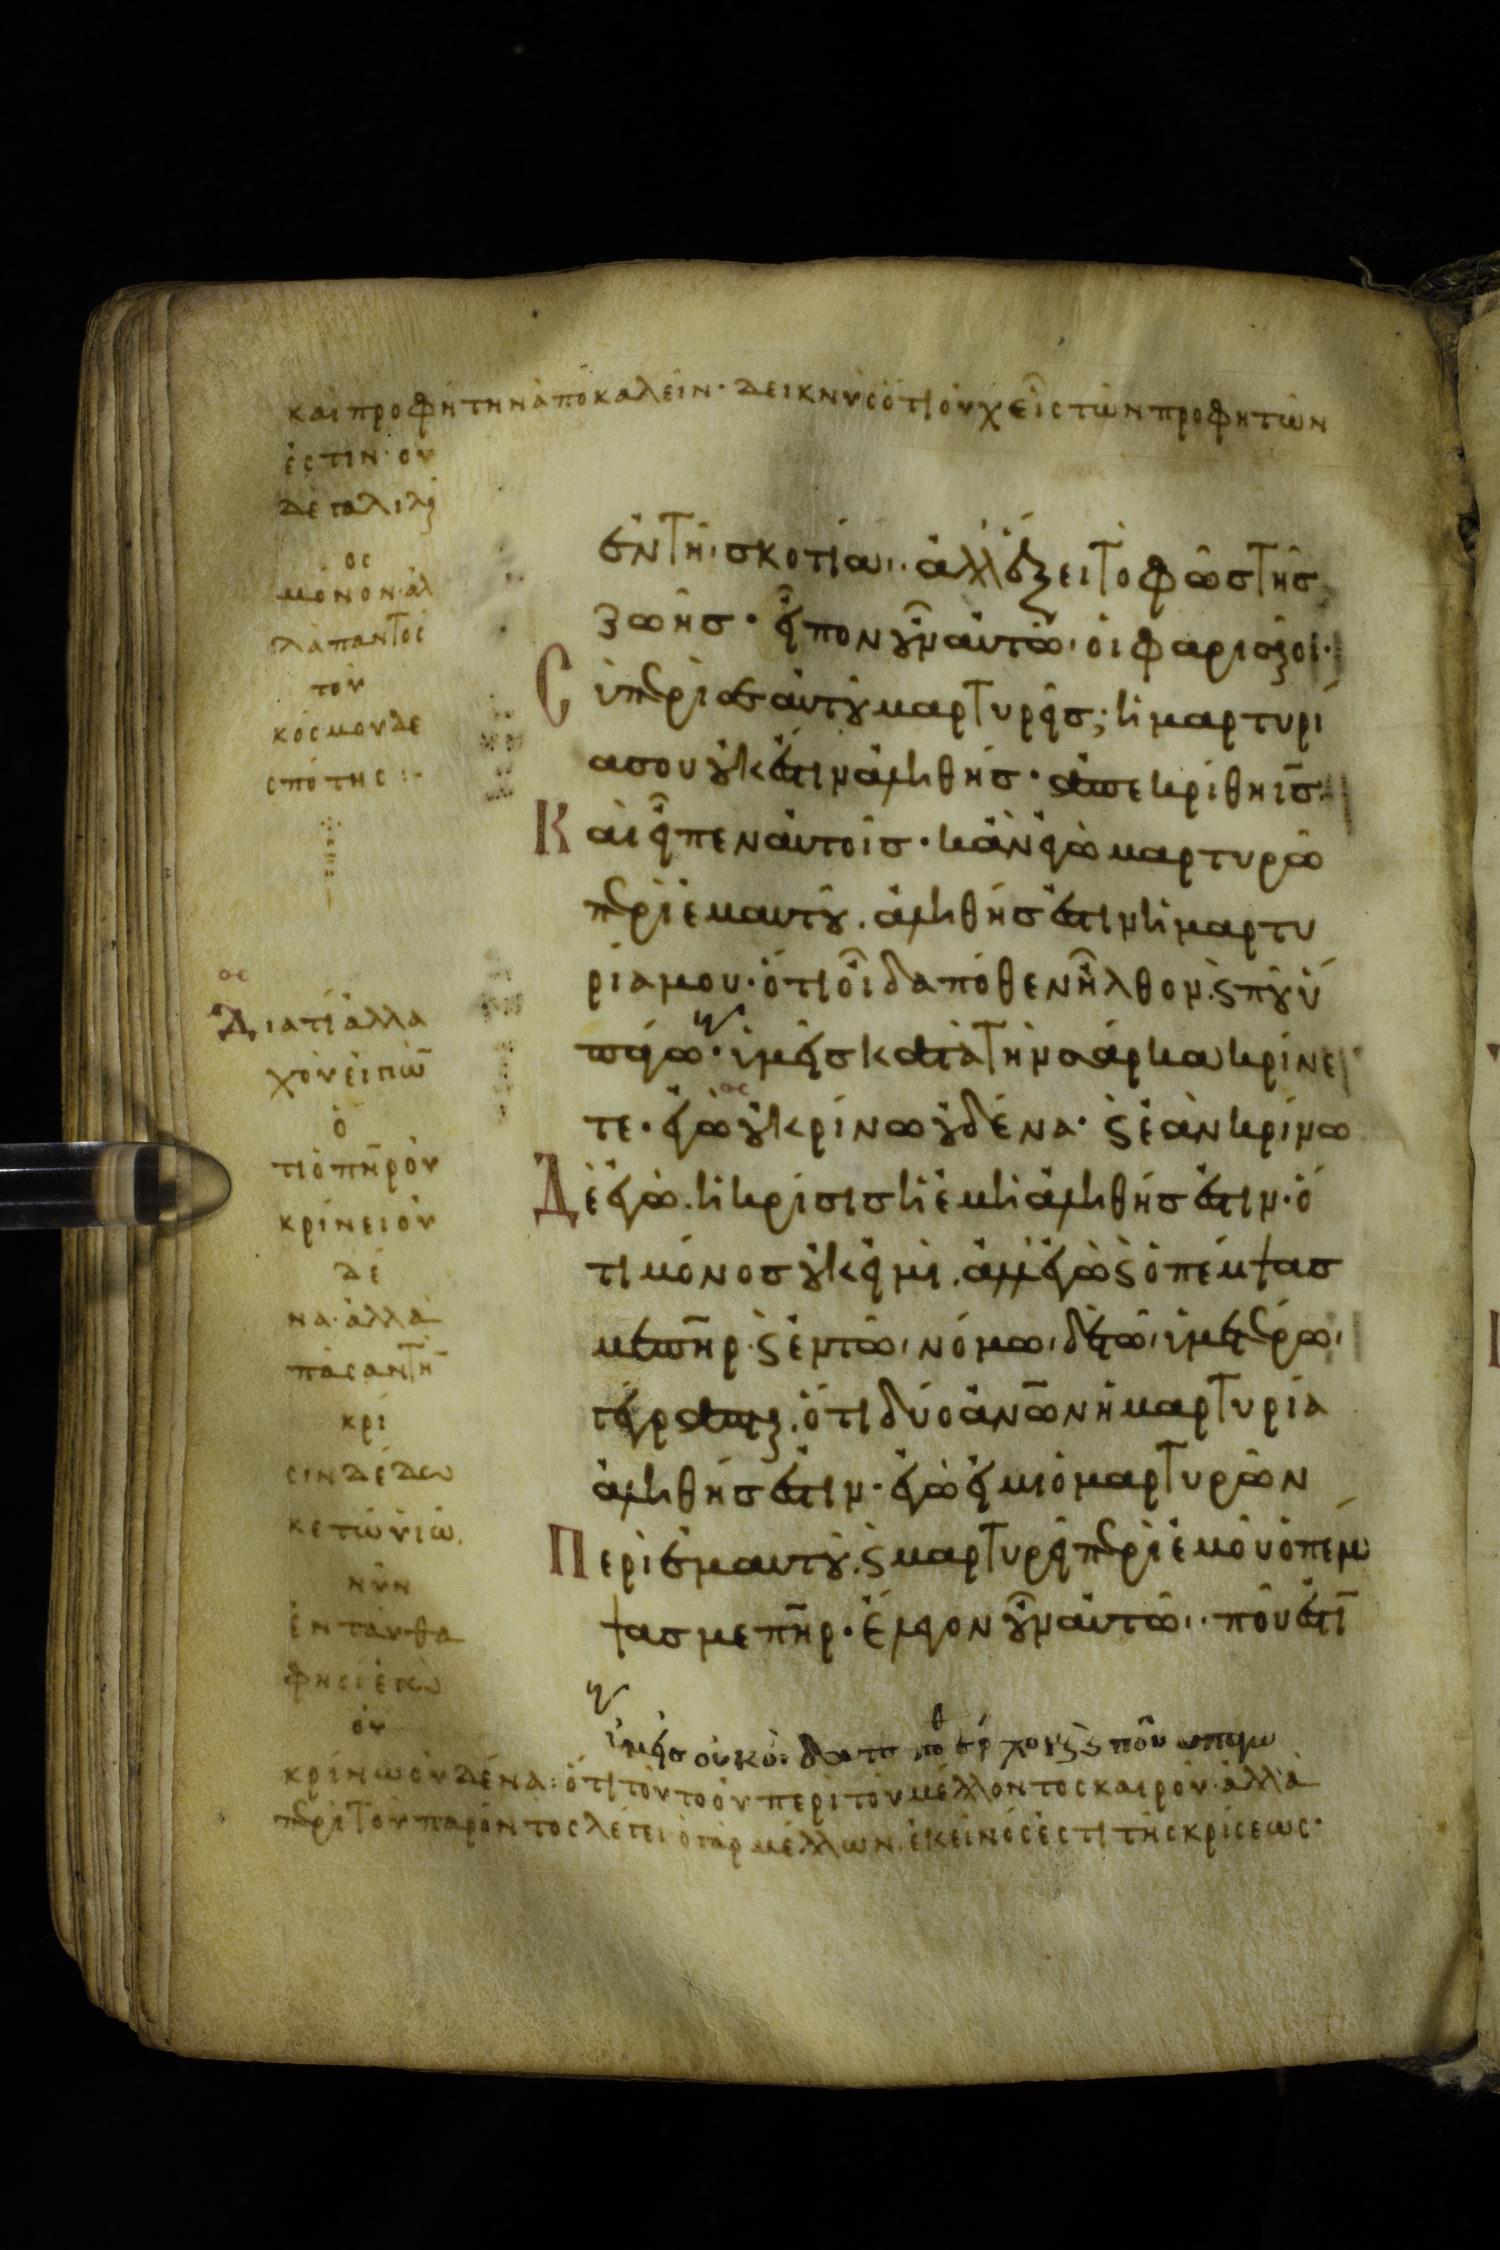 καὶ προφήτην ἀποκαλεῖν· δεικνὺς ὅτι οὐχ εἷς τῶν προφητῶν
ἐστιν· οὐ
δὲ γαλιλαῖ
ος
μόνον· ἀλ
λὰ παντὸς
τοῦ
κόσμου δε
σπότης:·
ἐν τῆ· σκοτία·· ἀλλ ἕξει τὸ φῶς τῆς
ζωῆς· εἶπον οὖν αὐτῶ· οἱ φαρισαῖοι·
Σὺ περὶ σεαυτοῦ μαρτυρεῖς; ἡ μαρτυρί
α σου οὐκ ἔστιν ἀληθής· ἀπεκρίθη ις̅·
Καὶ εἶπεν αὐτοῖς· κἂν ἐγὼ μαρτυρῶ
περὶ ἐμαυτοῦ. ἀληθής ἐστιν ἡ μαρτυ
ρία μου· ὅτι οἶδα πόθεν ἦλθον. ϗ ποῦ ὑ
πάγω· ὑμεῖς κατὰ τὴν σάρκα κρίνε
τε· ἐγὼ οὐ κρίνω οὐδένα· ϗ ἐὰν κρίνω
Δὲ ἐγὼ. ἡ κρίσις ἡ ἐμὴ ἀληθής ἐστιν· ὅ
τι μόνος οὐκ εἰμὶ. ἀλλ ἐγὼ ϗ ὁ πέμψας
με πη̅ρ· ϗ ἐν τῶ· νόμω· δὲ τῶ· ὑμετέρω·
γέγραπται. ὅτι δύο ἀνω̅ν ἡ μαρτυρία
ἀληθής ἐστιν· ἐγώ εἰμι ὁ μαρτυρῶν
Περὶ ἐμαυτοῦ. ϗ μαρτυρεῖ περὶ ἐμοῦ ὁ πέμ
ψας με πη̅ρ· Ἔλεγον οὖν αὐτῶ·· ποῦ ἐστὶ
Διατί ἀλλα
χοῦ εἰπὼ̅
ὁ
τι ὁ πη̅ρ οὐ
κρίνει οὐ
δέ
να· ἀλλὰ
πᾶσαν τὴ̅
κρί
σιν δέδω
κε τῶ υἱῶ.
νῦν
ἐνταῦθα
φησὶ ἐγὼ
οὐ
κρίνω οὐδένα: ὅτι τοῦτο οὐ περὶ τοῦ μέλλοντος καιροῦ· ἀλλὰ
περὶ τοῦ παρόντος λέγει· ὁ γὰρ μέλλων. ἐκεῖνός ἐστι τῆς κρίσεως·
ὑμεῖς οὐκ οἴδατε ποθ ἔρχομαι ϗ ποῦ ὑπάγω